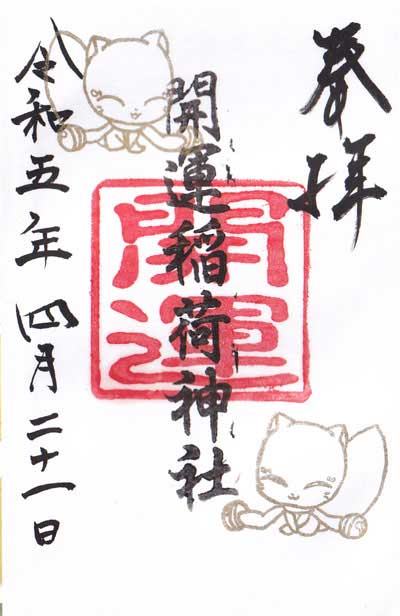 奉拝
開運稲荷神社
開運
令和五年四月二十一日